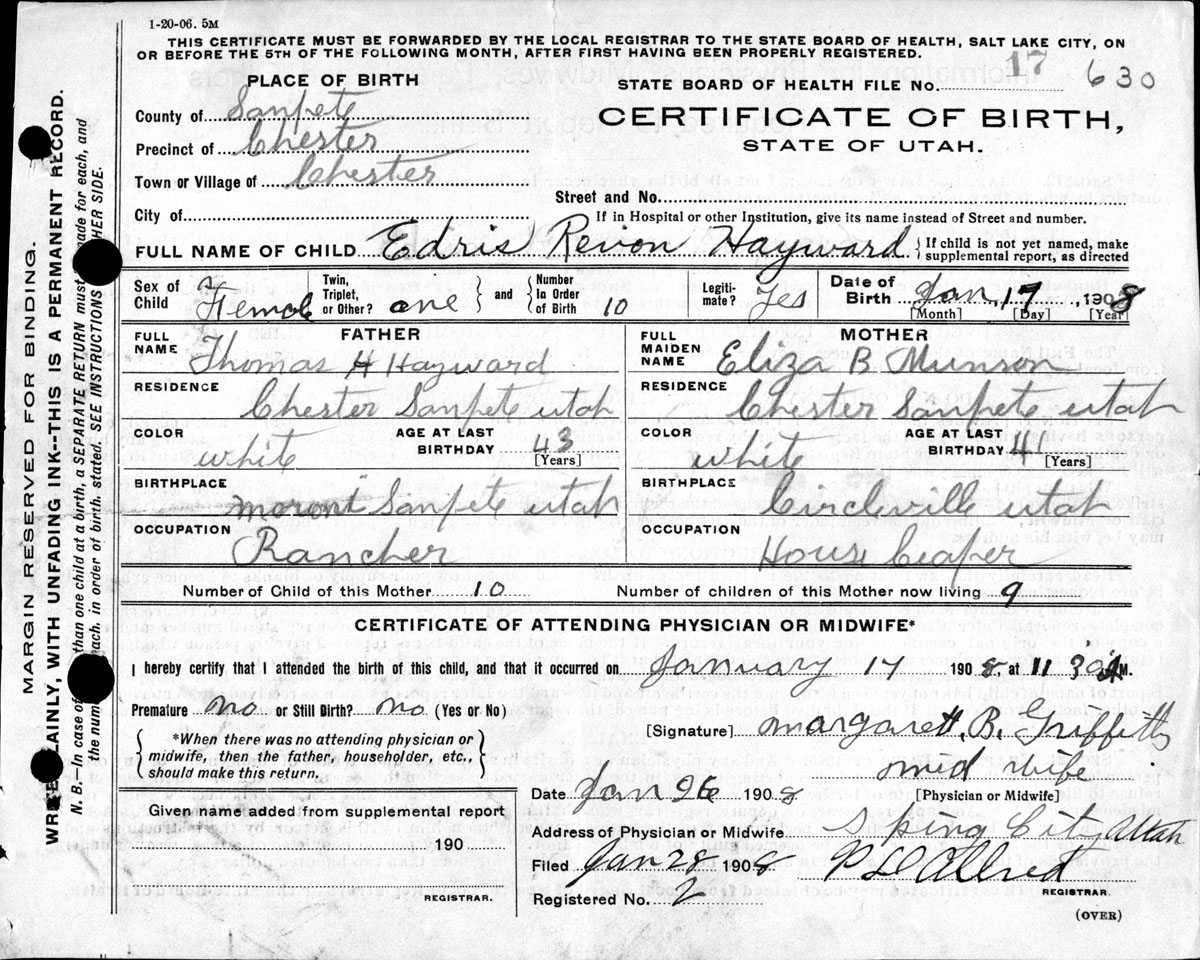 1-20-06. 5M
THIS CERTIFICATE MUST BE FORWARDED BY THE LOCAL REGISTRAR TO THE STATE BOARD OF HEALTH, SALT LAKE CITY, ON
OR BEFORE THE 5TH OF THE FOLLOWING MONTH, AFTER FIRST HAVING BEEN PROPERLY REGISTERED.
PLACE OF BIRTH
STATE BOARD OF HEALTH FILE NO. 17 630
County of Sanpete
CERTIFICATE OF BIRTH,
Precinct of Chester
STATE OF UTAH.
Town or Village of Chester
Street and No.
City of
If in Hospital or other Institution, give its name instead of Street and number.
FULL NAME OF CHILD Edris Revon Hayward } If child is not yet named, make supplemental report, as directed
Sex of Child Female Twin, Triplet, or Other? one } and { Number In Order of Birth 10 Legiti-mate? Yes Date of Birth Jan, 17, 1908
[Month] [Day] [Year]
FATHER
MOTHER
FULL NAME Thomas H Hayward
FULL MAIDEN NAME Eliza B Munson
RESIDENCE
Chester Sanpete utah
RESIDENCE
Chester Sanpete utah
COLOR white AGE AT LAST BIRTHDAY 43 [Years]
COLOR white AGE AT LAST BIRTHDAY 41 [Years]
BIRTHPLACE
moroni Sanpete utah
BIRTHPLACE
Circleville utah
OCCUPATION
Rancher
OCCUPATION
House Ceaper
Number of Child of this Mother 10
Number of children of this Mother now living 9
CERTIFICATE OF ATTENDING PHYSICIAN OR MIDWIFE*
I hereby certify that I attended the birth of this child, and that it occurred on January 17 1908 at 11 30 A M.
Premature no or Still Birth? no (Yes or No)
[Signature] Margarett. B. Griffitts
{ *When there was no attending physician or
midwife, then the father, householder, etc.,
should make this return. }
mid wife
Date Jan 26 1908 [Physician or Midwife]
Given name added from supplemental report
190
REGISTRAR.
Address of Physician or Midwife Sping City Utah
Filed Jan 28 1908 Allred
REGISTRAR.
Registered No. 2
(OVER)
MARGIN RESERVED FOR BINDING.
PLAINLY, WITH UNFADING INK--THIS IS A PERMANENT RECORD.
N. B.—In case of than one child at birth, a SEPARATE RETURN must made for each, and
the num each, in order of birth, stated. SEE INSTRUCTIONS HER SIDE.